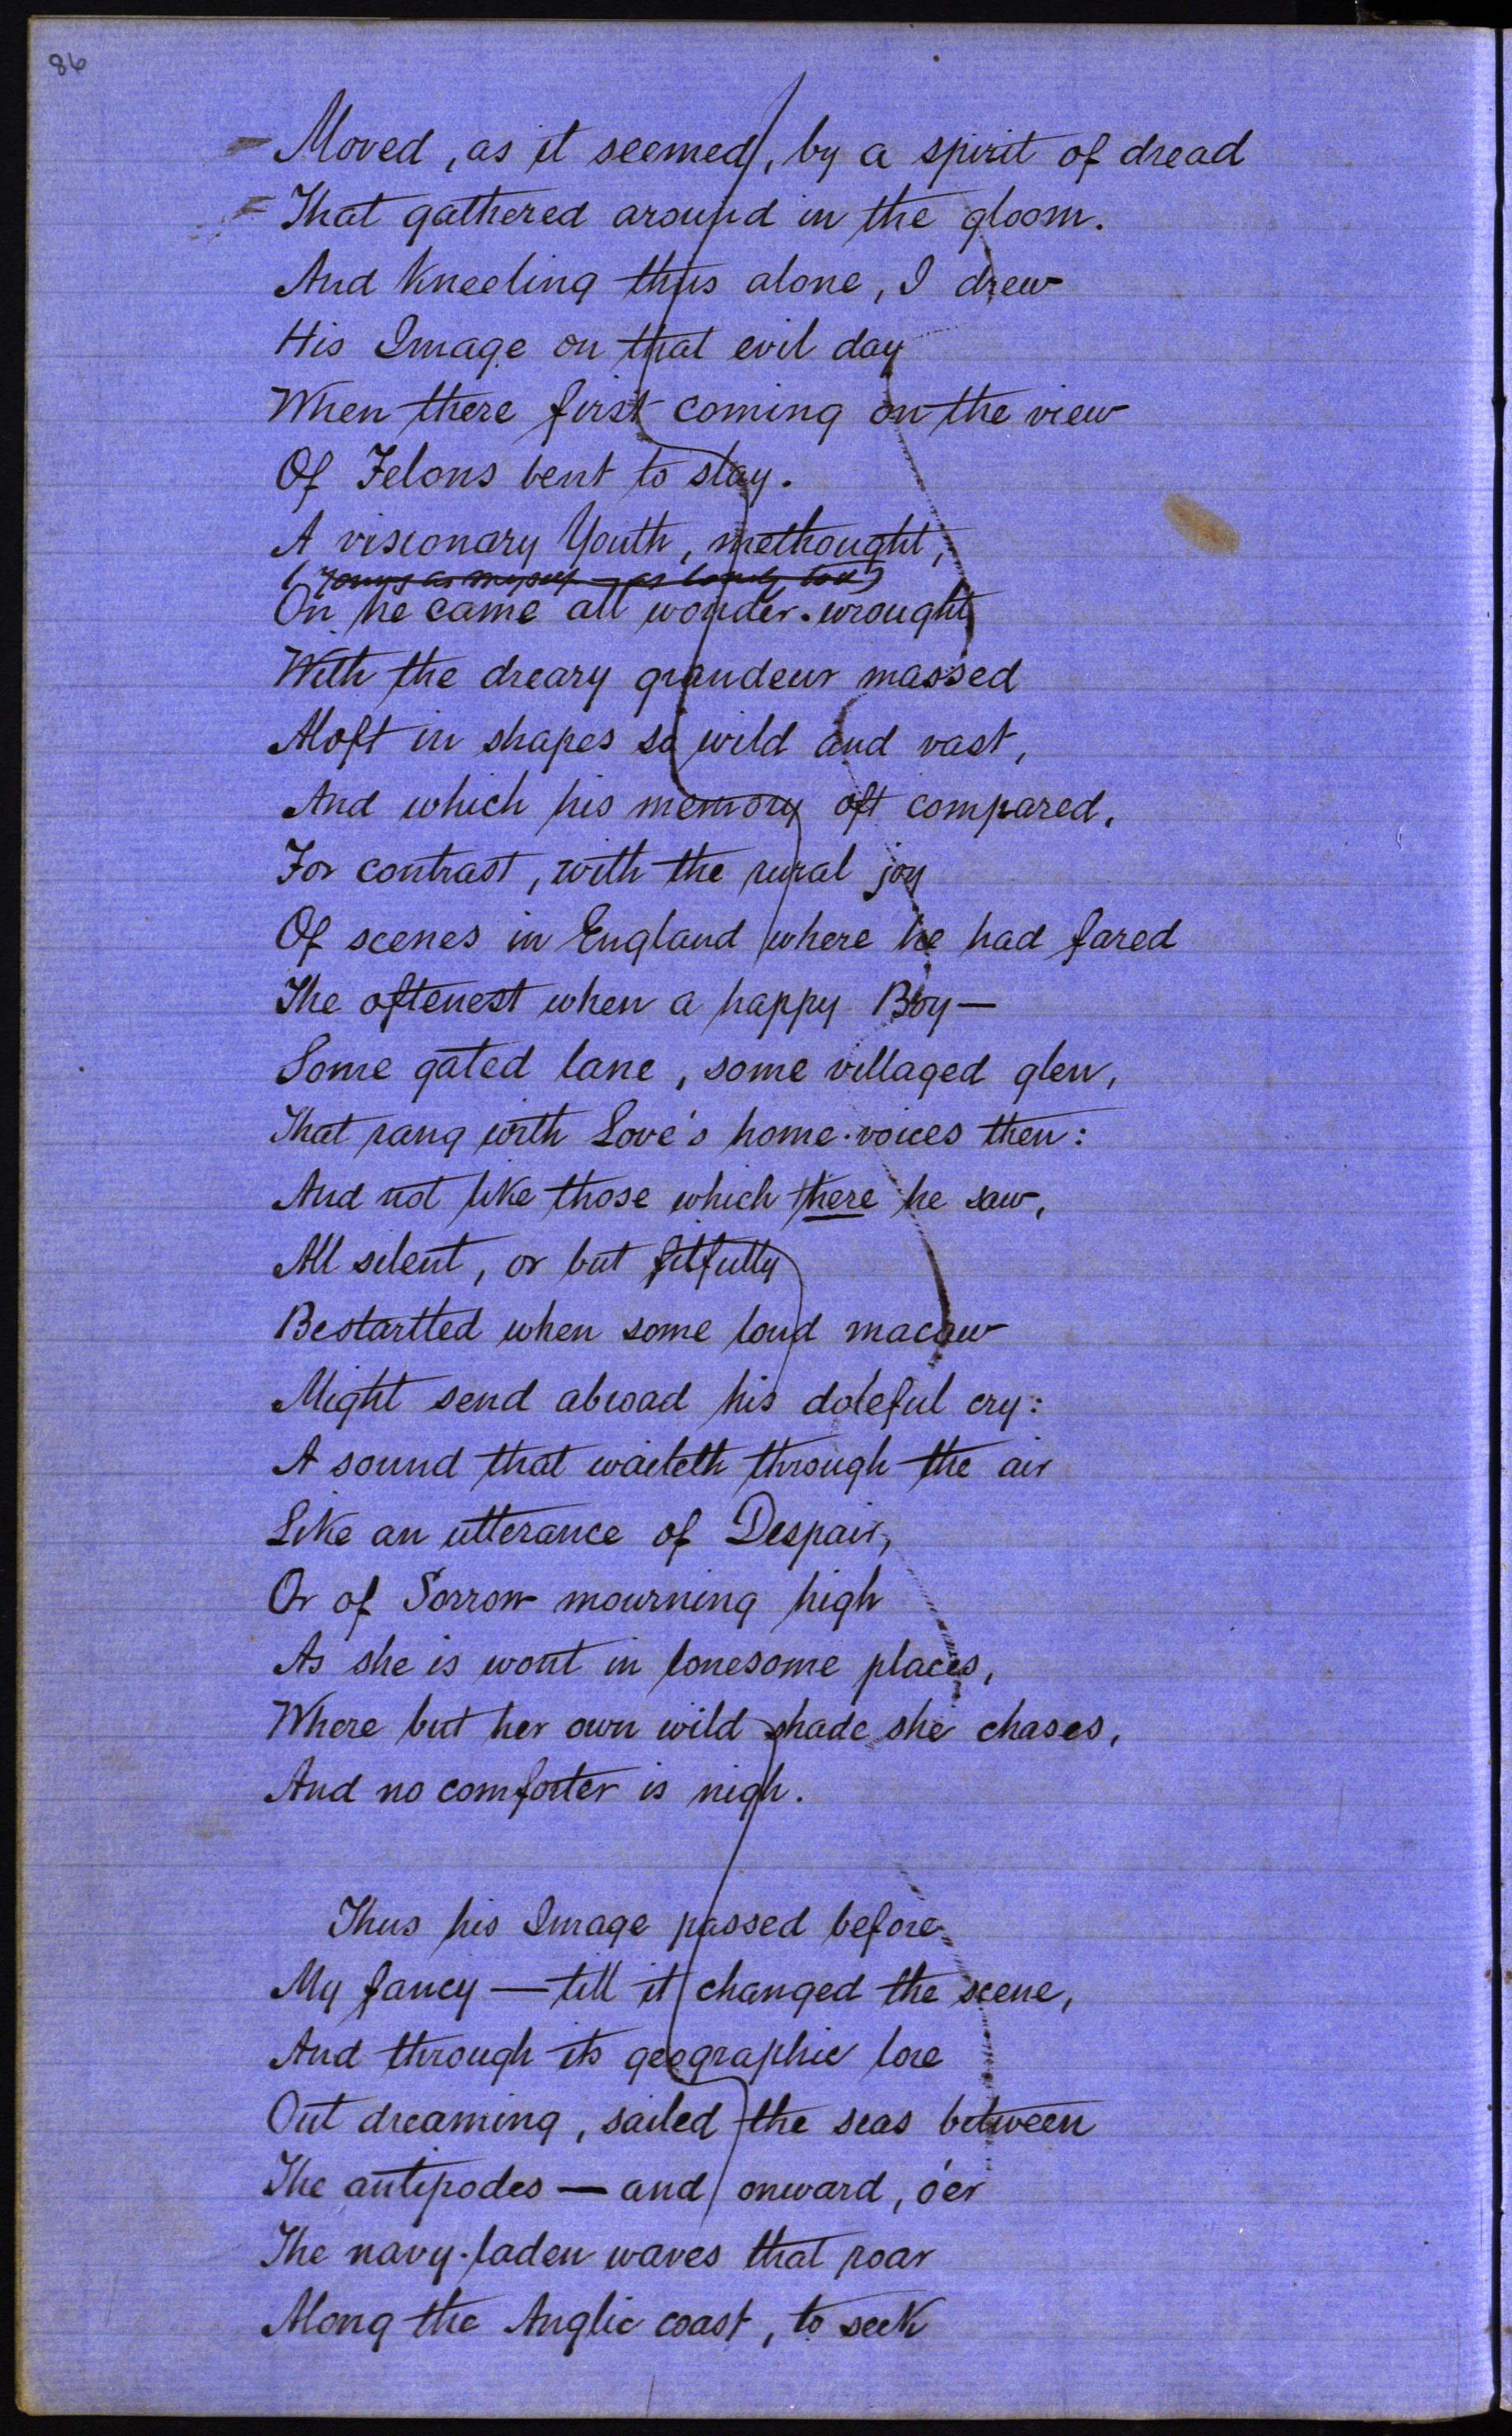 86
Moved, as it seemed, by a spirit of dread
That gathered around in the gloom.
And kneeling thus alone, I drew
His Image on that evil day
When there first coming on the view
Of Felons bent to slay.
A visionary Youth, methought,
(Young as myself — as lonely too)
On he came all wonder-wrought
With the dreary grandeur massed
Aloft in shapes so wild and vast,
And which his memory oft compared,
For contrast, with the rural joy
Of scenes in England where he had fared
The oftenest when a happy Boy—
Some gated lane, some villaged glen,
That rang with Love's home-voices then:
And not like those which there he saw,
All silent, or but fitfully
Bestartted when some loud macaw
Might send abroad his doleful cry:
A sound that waileth through the air
Like an utterance of Despair,
Or of Sorrow mourning high
As she is wont in lonesome places,
Where but her own wild shade she chases,
And no comforter is nigh.
Thus his Image passed before
My fancy — till it changed the scene,
And through its geographic lore
Out dreaming, sailed the seas between
The antipodes — and onward, o'er
The navy-laden waves that roar
Along the Anglic coast, to seek